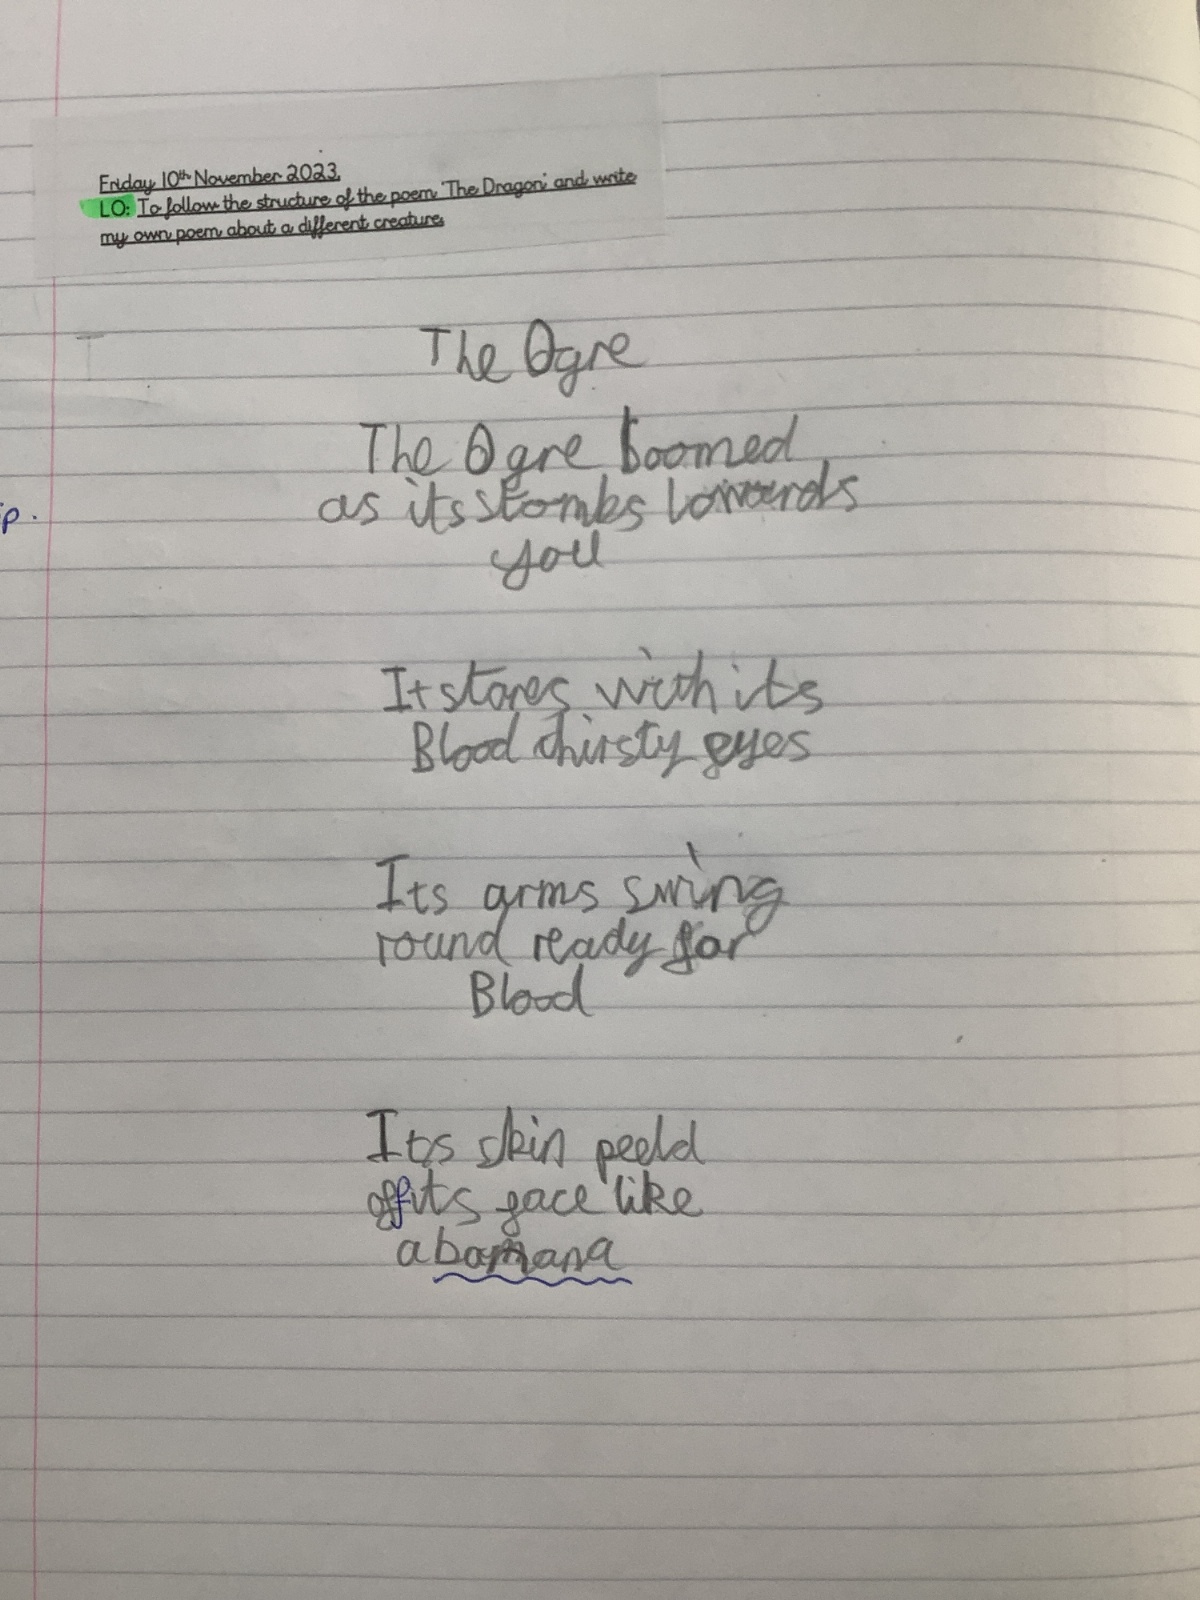 Friday 10th November 2023.
LO: To follow the structure of the poem 'The Dragon' and write
my own poem about a different creature.
The Ogre
The Ogre boomed
as its stombs towards
p.
you
It stares with its
Blood thirsty eyes
Its arms swing
round ready for
Blood
Its skin peeld
off its face like
a banana